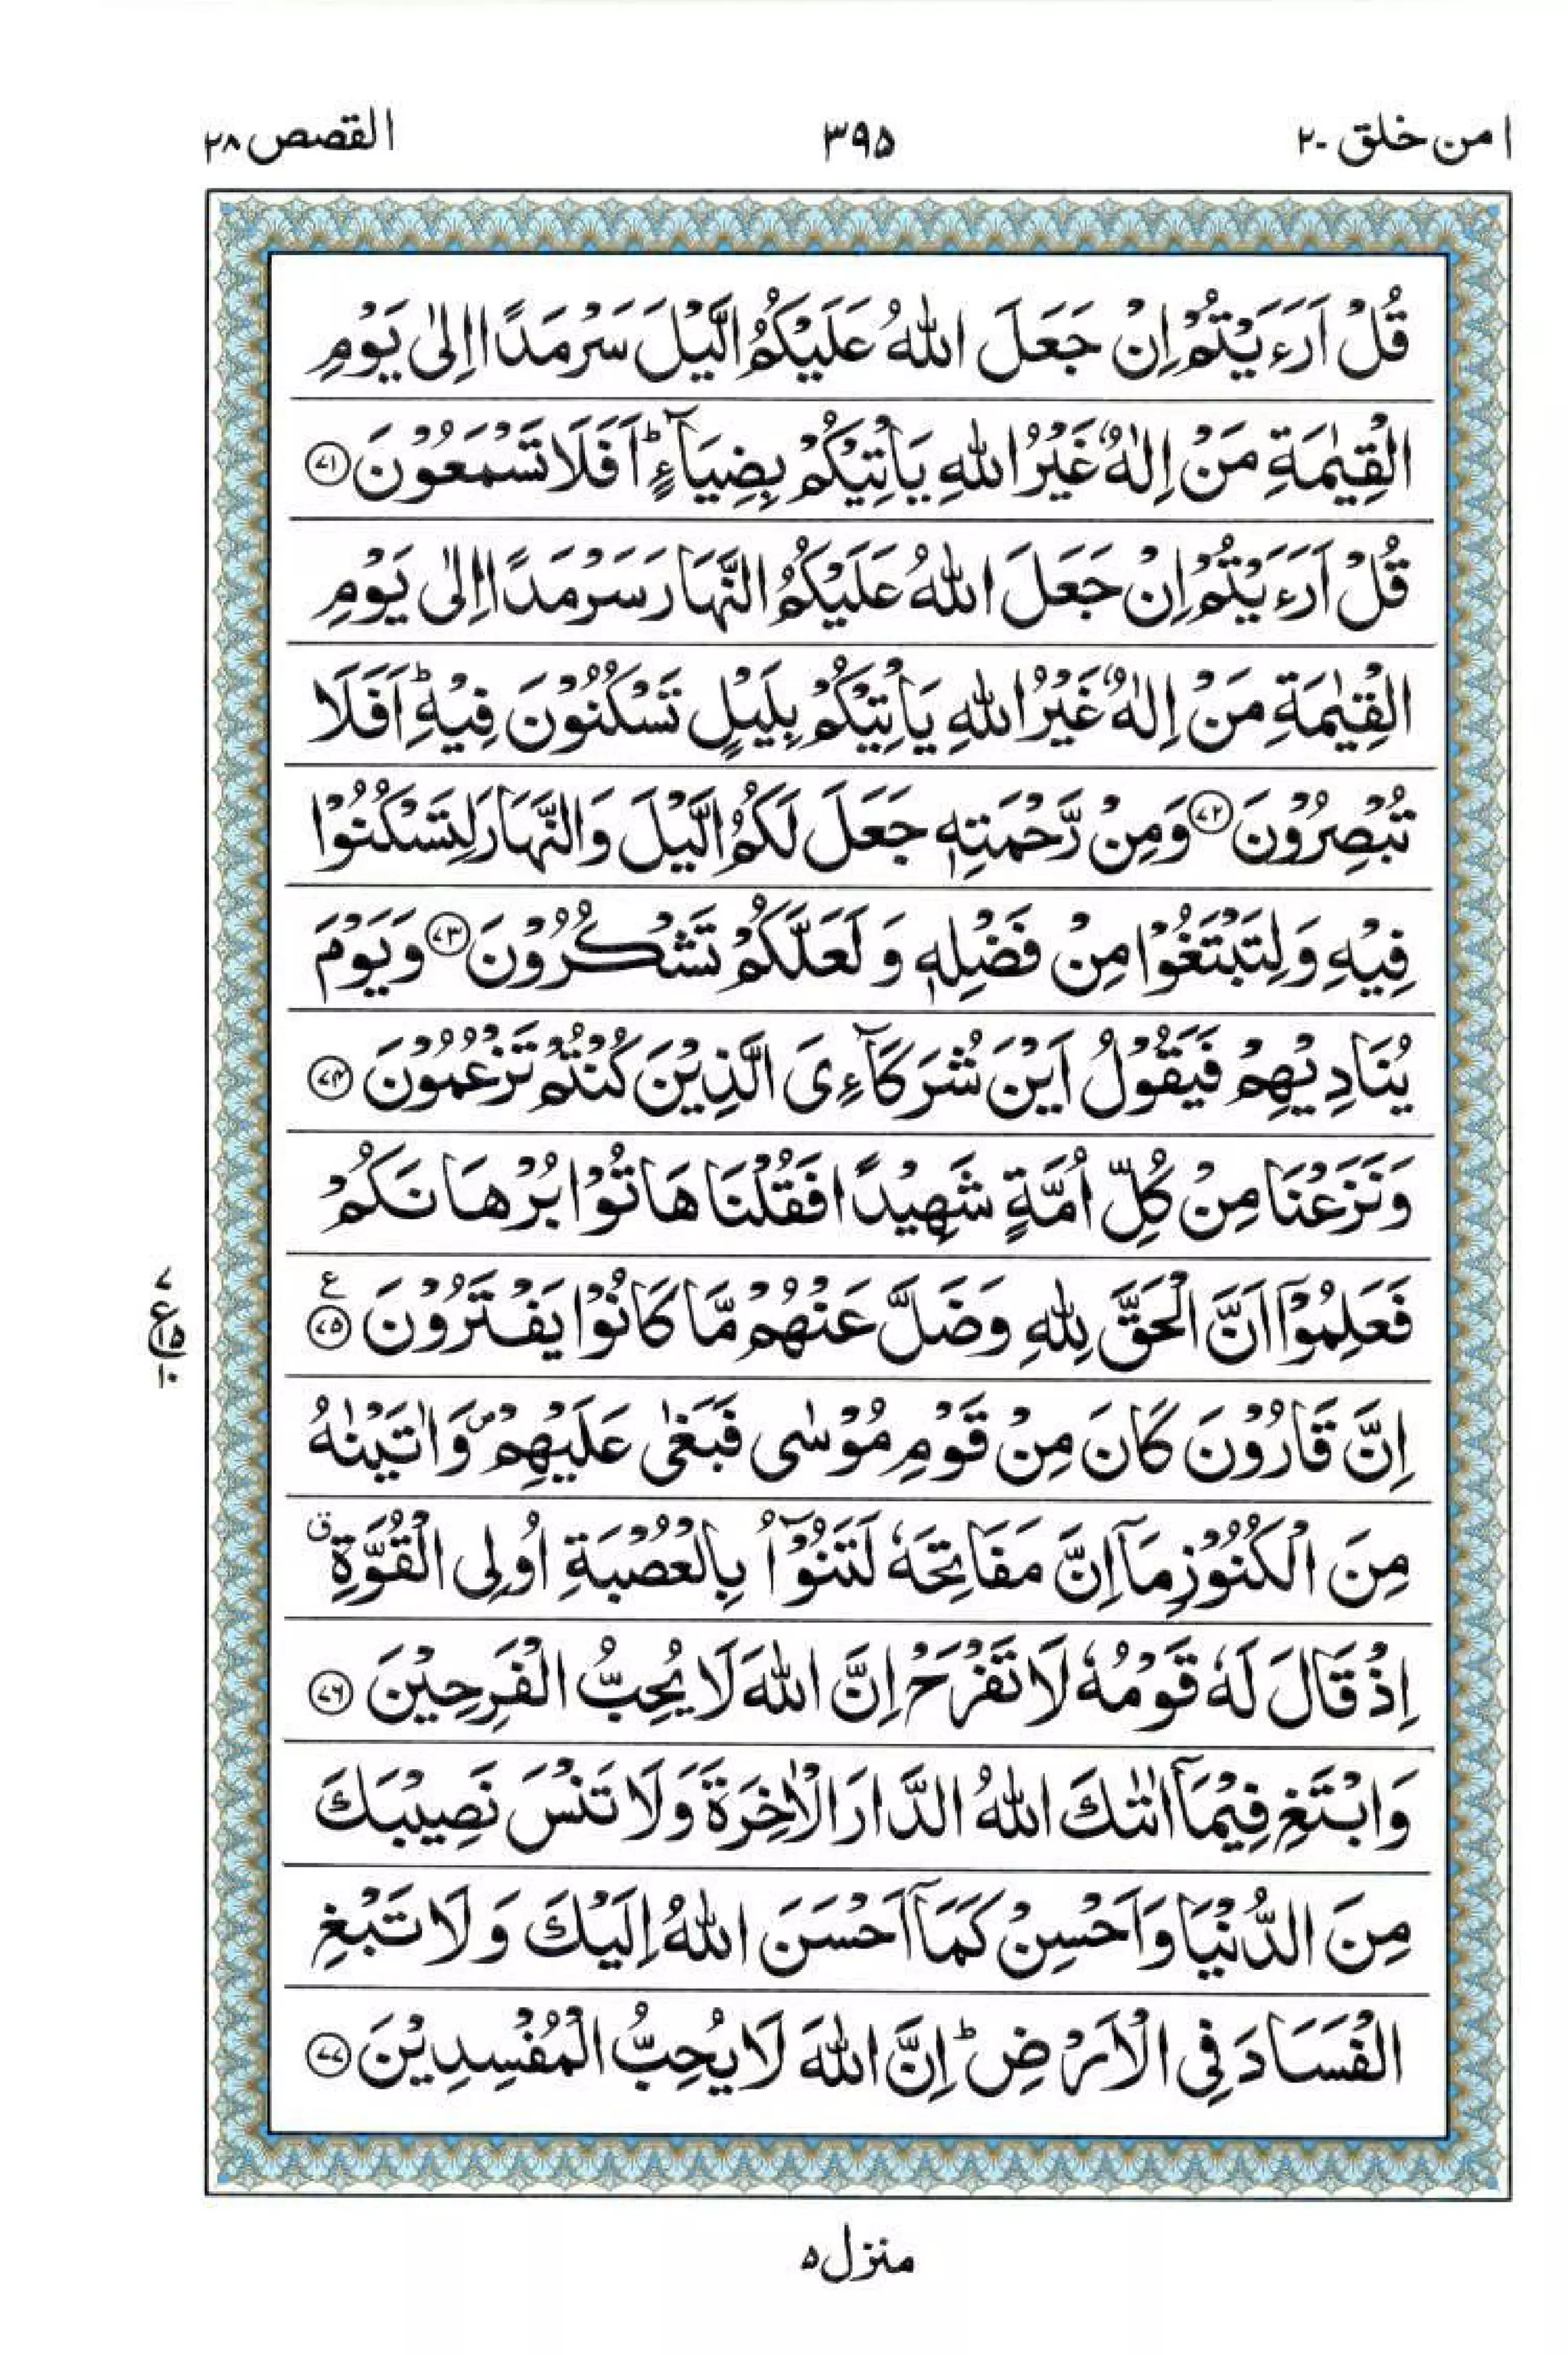 امن خلق ۲۰
۳۹۵
القصص ۲۸
قُلْ اَرَءَيْتُمْ اِنْ جَعَلَ اللّٰهُ عَلَيْكُمُ الَّيْلَ سَرْمَدًا اِلٰى يَوْمِ
الْقِيٰمَةِ مَنْ اِلٰهٌ غَيْرُ اللّٰهِ يَاْتِيْكُمْ بِضِيَآءٍ ؕ اَفَلَا تَسْمَعُوْنَ ۷۱
قُلْ اَرَءَيْتُمْ اِنْ جَعَلَ اللّٰهُ عَلَيْكُمُ النَّهَارَ سَرْمَدًا اِلٰى يَوْمِ
الْقِيٰمَةِ مَنْ اِلٰهٌ غَيْرُ اللّٰهِ يَاْتِيْكُمْ بِلَيْلٍ تَسْكُنُوْنَ فِيْهِ ؕ اَفَلَا
تُبْصِرُوْنَ ۷۲ وَمِنْ رَّحْمَتِهٖ جَعَلَ لَكُمُ الَّيْلَ وَالنَّهَارَ لِتَسْكُنُوْا
فِيْهِ وَلِتَبْتَغُوْا مِنْ فَضْلِهٖ وَلَعَلَّكُمْ تَشْكُرُوْنَ ۷۳ وَيَوْمَ
يُنَادِيْهِمْ فَيَقُوْلُ اَيْنَ شُرَكَآءِىَ الَّذِيْنَ كُنْتُمْ تَزْعُمُوْنَ ۷۴
وَنَزَعْنَا مِنْ كُلِّ اُمَّةٍ شَهِيْدًا فَقُلْنَا هَاتُوْا بُرْهَانَكُمْ
فَعَلِمُوْٓا اَنَّ الْحَقَّ لِلّٰهِ وَضَلَّ عَنْهُمْ مَّا كَانُوْا يَفْتَرُوْنَ ۷۵ ع
۷
ع
۱۵
۱۰
اِنَّ قَارُوْنَ كَانَ مِنْ قَوْمِ مُوْسٰى فَبَغٰى عَلَيْهِمْ ۪ وَاٰتَيْنٰهُ
مِنَ الْكُنُوْزِ مَآ اِنَّ مَفَاتِحَهٗ لَتَنُوْٓاُ بِالْعُصْبَةِ اُولِى الْقُوَّةِ ق
اِذْ قَالَ لَهٗ قَوْمُهٗ لَا تَفْرَحْ اِنَّ اللّٰهَ لَا يُحِبُّ الْفَرِحِيْنَ ۷۶
وَابْتَغِ فِيْمَآ اٰتٰىكَ اللّٰهُ الدَّارَ الْاٰخِرَةَ وَلَا تَنْسَ نَصِيْبَكَ
مِنَ الدُّنْيَا وَاَحْسِنْ كَمَآ اَحْسَنَ اللّٰهُ اِلَيْكَ وَلَا تَبْغِ
الْفَسَادَ فِى الْاَرْضِ ؕ اِنَّ اللّٰهَ لَا يُحِبُّ الْمُفْسِدِيْنَ ۷۷
منزل ۵